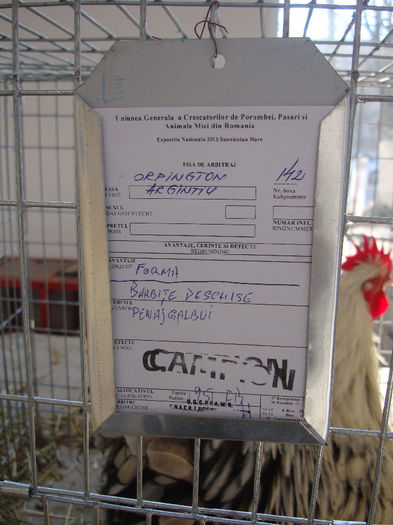 Uniunea Generala a Crescatorilor de Porumbei, Pasari si
Animale Mici din Romania
Expozitia Nationala 2013 Sannicolau Mare
FISA DE ARBITRAJ
ORPINGTON 142
RASA ARGINTIU
RASSE Nr. boxa
Kafignummer
SEXUL
DAS GESCHLECHT
PRETUL NUMAR INEL
PREIS RINGNUMMER
AVANTAJE, CERINTE SI DEFECTE
BEGRUNDUNG
AVANTAJE
VORZUGE FORMA
BĂRBIȚE DESCHISE
PENAJ GALBUI
CAMPION
CALIFICATIVUL Puncte 95